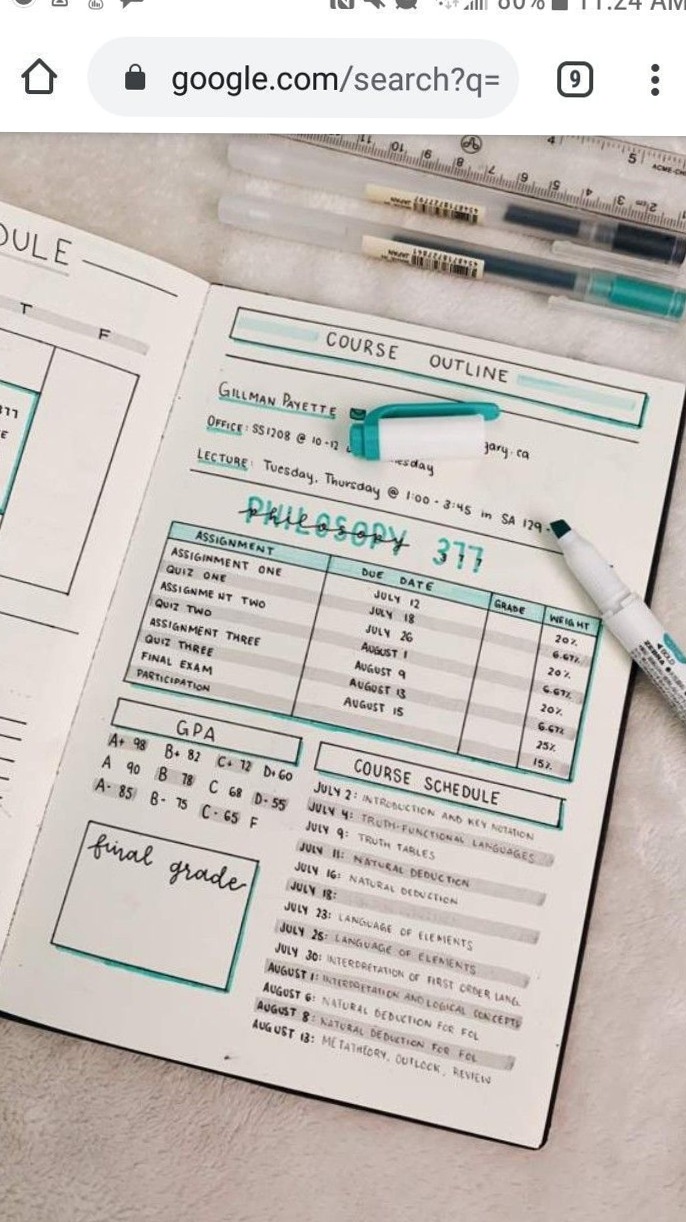 11:24 AM
google.com/search?q=
9
DULE
T F
COURSE OUTLINE
GILLMAN PAYETTE gary.ca
OFFICE: SS1208 @ 10-12
LECTURE: Tuesday, Thursday @ 1:00 - 3:45 in SA 129
PHILOSOPY 377
philosopy
ASSIGNMENT DUE DATE GRADE WEIGHT
ASSIGINMENT ONE JULY 12 20%
QUIZ ONE JULY 18 6.67%
ASSIGNMENT TWO JULY 26 20%
QUIZ TWO AUGUST 1 6.67%
ASSIGNMENT THREE AUGUST 9 20%
QUIZ THREE AUGUST 13 6.67%
FINAL EXAM AUGUST 15 25%
PARTICIPATION 15%
GPA
A+ 98 B+ 82 C+ 72 D+ 60
A 90 B 78 C 68 D- 55
A- 85 B- 75 C- 65 F
final grade
COURSE SCHEDULE
JULY 2: INTRODUCTION AND KEY NOTATION
JULY 4: TRUTH-FUNCTIONAL LANGUAGES
JULY 9: TRUTH TABLES
JULY 11: NATURAL DEDUCTION
JULY 16: NATURAL DEDUCTION
JULY 18:
JULY 23: LANGUAGE OF ELEMENTS
JULY 25: LANGUAGE OF ELEMENTS
JULY 30: INTERPRETATION OF FIRST ORDER LANG.
AUGUST 1: INTERPRETATION AND LOGICAL CONCEPTS
AUGUST 6: NATURAL DEDUCTION FOR FOL
AUGUST 8: NATURAL DEDUCTION FOR FOL
AUGUST 13: METATHEORY, OUTLOCK, REVIEW